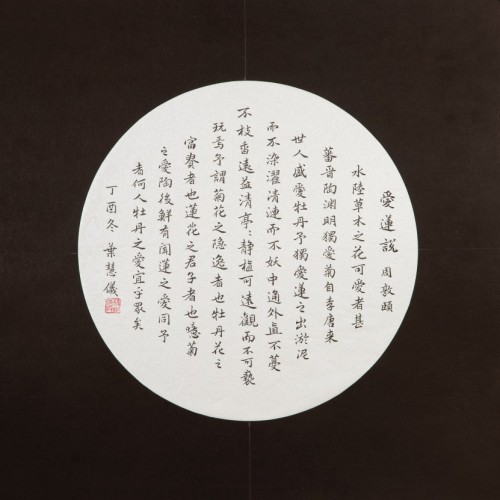 愛蓮說 周敦頤
水陸草木之花可愛者甚
蕃晉陶淵明獨愛菊自李唐來
世人盛愛牡丹予獨愛蓮之出淤泥
而不染濯清漣而不妖中通外直不蔓
不枝香遠益清亭〻靜植可遠觀而不可褻
玩焉予謂菊花之隱逸者也牡丹花之
富貴者也蓮花之君子者也噫菊
之愛陶後鮮有聞蓮之愛同予
者何人牡丹之愛宜乎眾矣
丁酉冬 葉慧儀